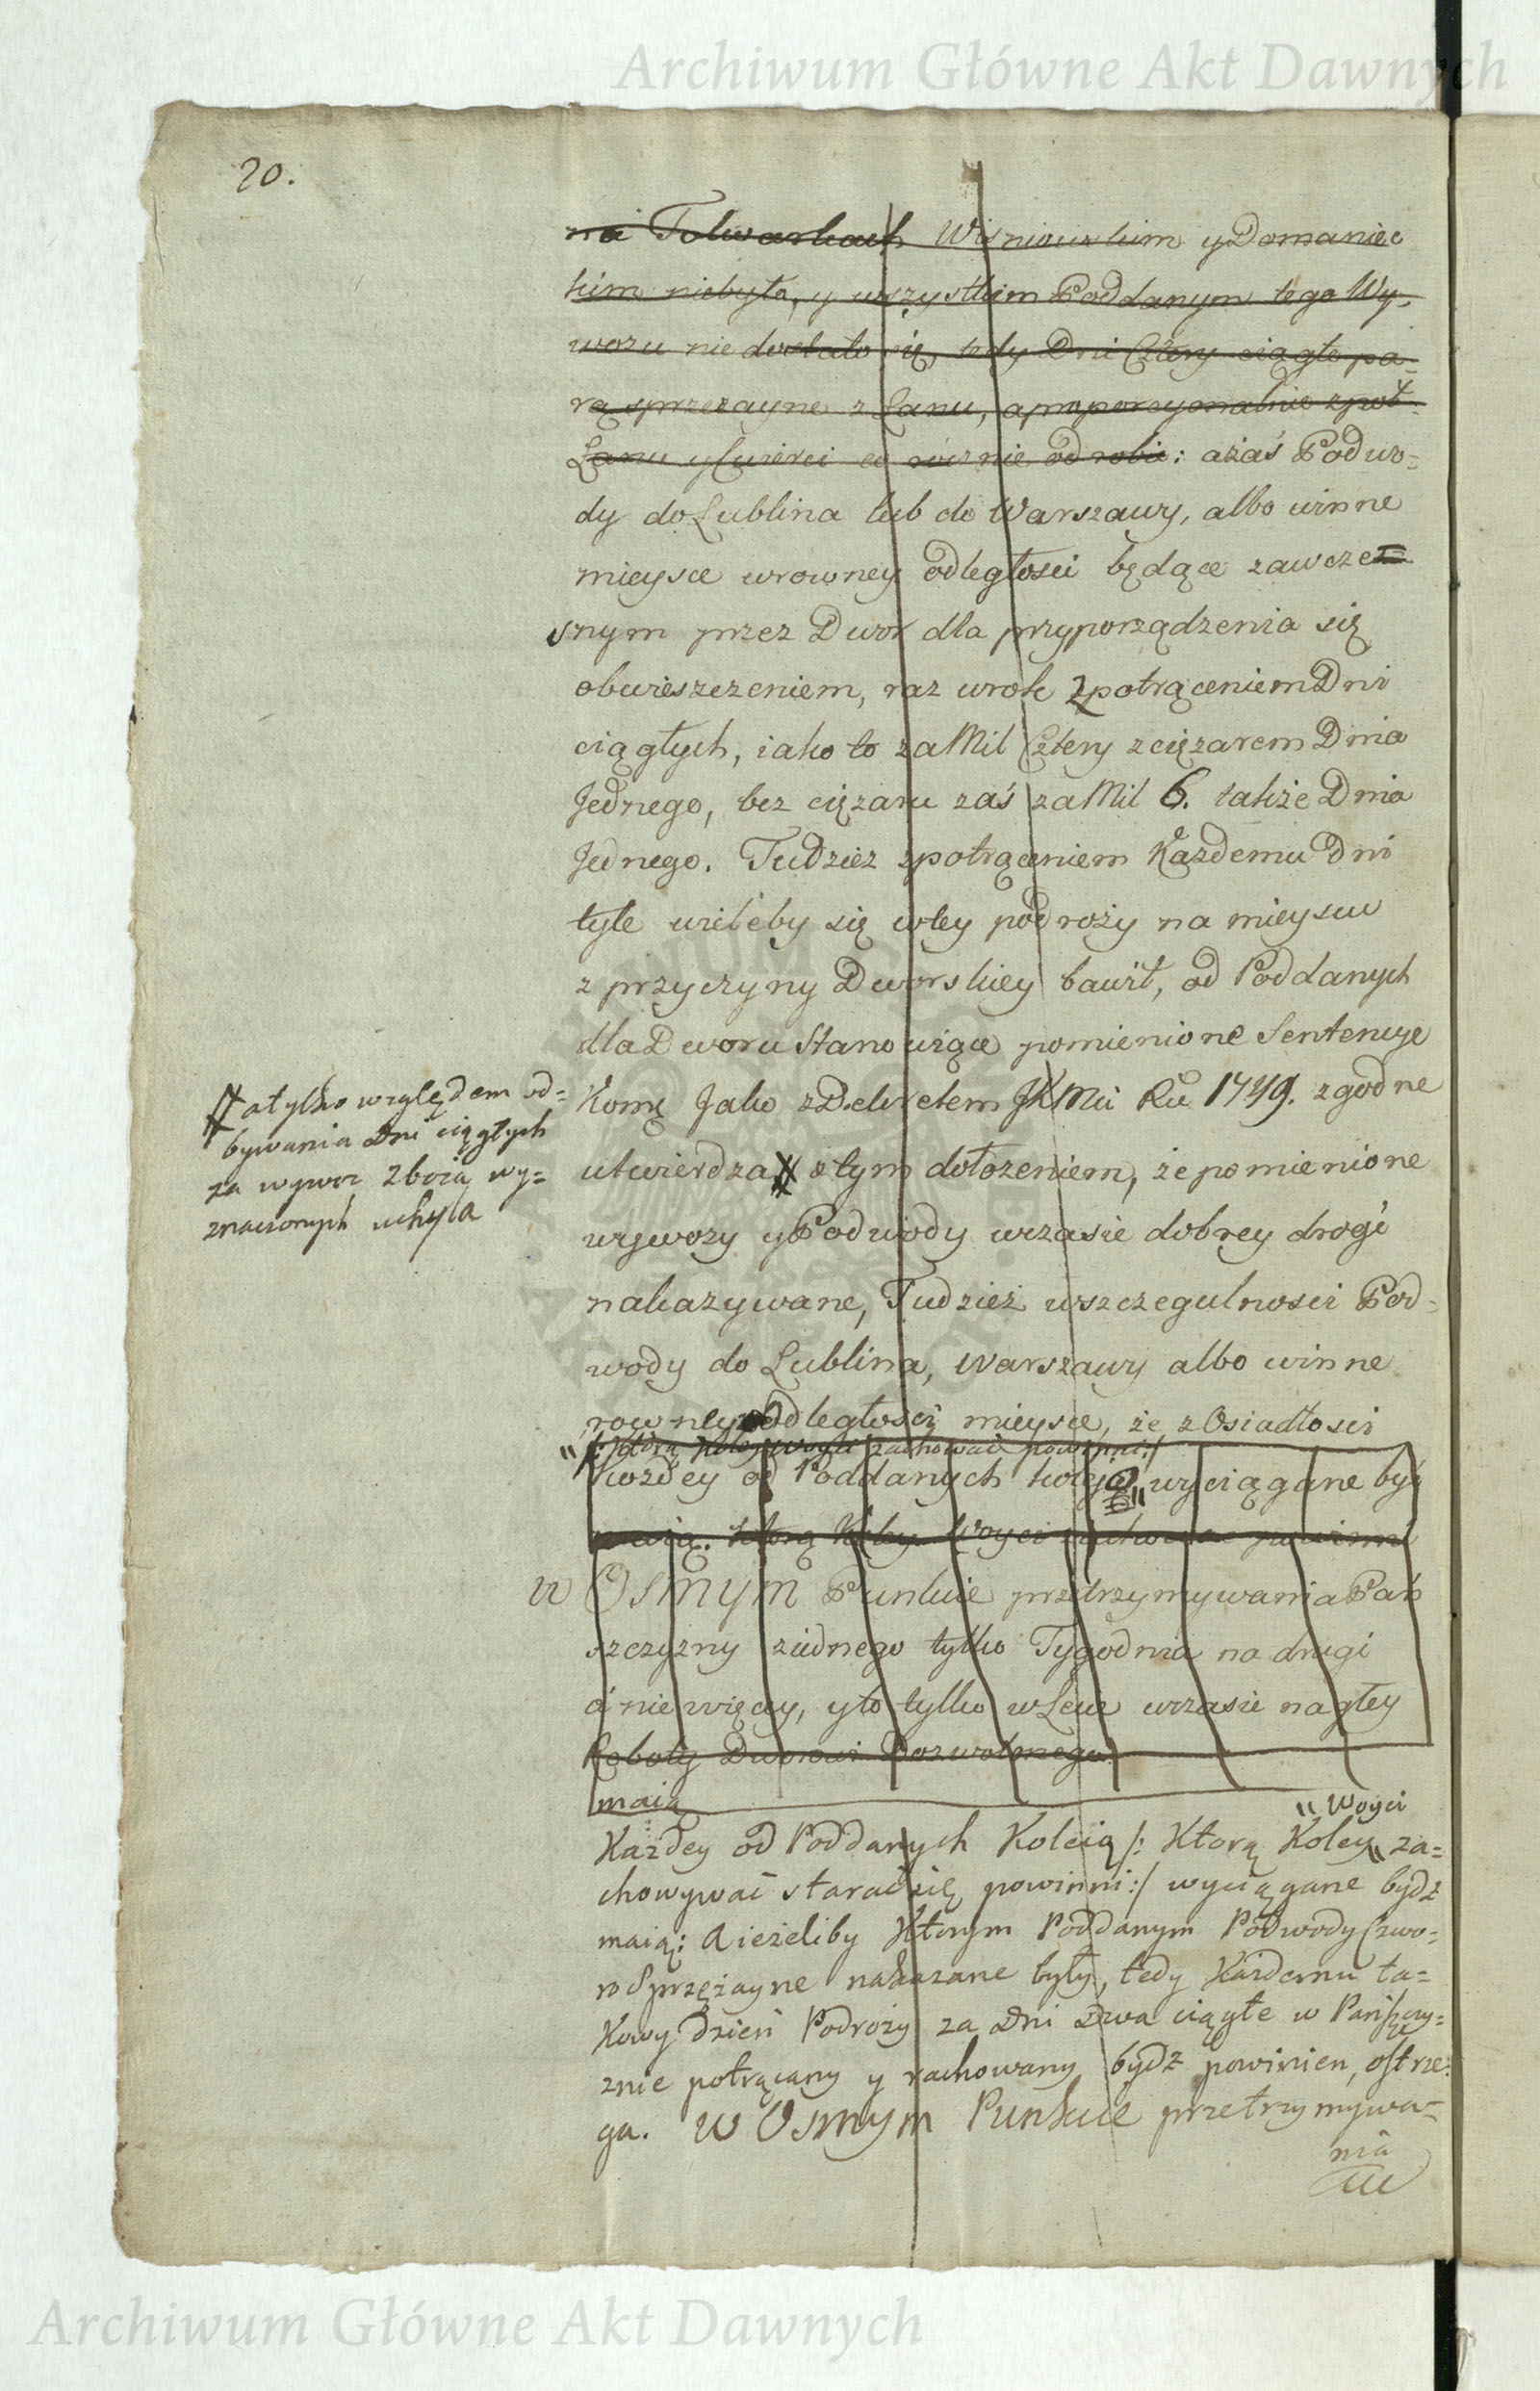 Archiwum Główne Akt Dawnych
20.
na Folwarkach Wisniowskim y Domaniec
kim niebyło, y wszystkim Poddanym tego Wy-
wozu nie dostało się, tedy Dni Cztery ciągłe pa-
rą sprzezayne z Łanu, aproporcyonalnie zpoł-
Łanu y Cwierci co rocznie odrobic: azaś Podwo-
dy do Lublina lub do Warszawy, albo winne
mieysce wrowney odległosci będące zawcze=
snym przez Dwor dla przyporządzenia się
obwieszczeniem, raz wrok zpotrąceniem Dni
ciągłych, iako to za Mil Cztery zciężarem Dnia
Jednego, bez ciężaru zaś za Mil 6. także Dnia
Jednego. Tudzież zpotrąceniem Każdemu Dni
tyle wieleby się wtey podroży na mieyscu
z przyczyny Dworskiey bawił, od Poddanych
dla Dworu Stanowiące pomienione Sentencye
Komę Jako z Dekretem JKMci Ru 1749. zgodne
utwierdza # z tym dołozeniem, że pomienione
wywozy y Podwody wczasie dobrey drogi
nakazywane, Tudzież wszczegulnosci Pod-
wody do Lublina, Warszawy albo winne
rowney odległosci mieysce, że z Osiadłosci
"/: ktorą koley woyci zachować powinni:/
każdey od Poddanych koleją " wyciągane być
maią. ktorą koley Woyci zachować powinni
w Osmym Punkcie przetrzymywania Pań
szczyzny ziednego tylko Tygodnia na drugi
a nie więcey, y to tylko w Lecie wczasie nagłey
Roboty Dworowi Dozwolonego.
maią
# a tylko względem od=
bywania Dni ciągłych
za wywoz zboża wy=
znaczonych uchyla
" Woyci
Każdey od Poddanych Koleią /: Ktorą Koley " za=
chowywać staracsię powinni:/ wyciągane bydź
maią: A ieżeliby Ktorym Poddanym Podwody Czwo=
ro Sprzężayne nakazane były, tedy Każdemu ta=
Kowy dzień Podroży za Dni Dwa ciągłe w Pańszczy=
znie potrącany y rachowany bydź powinien, ostrze=
ga. W Osmym Punkcie przetrzymywa=
nia
Archiwum Główne Akt Dawnych